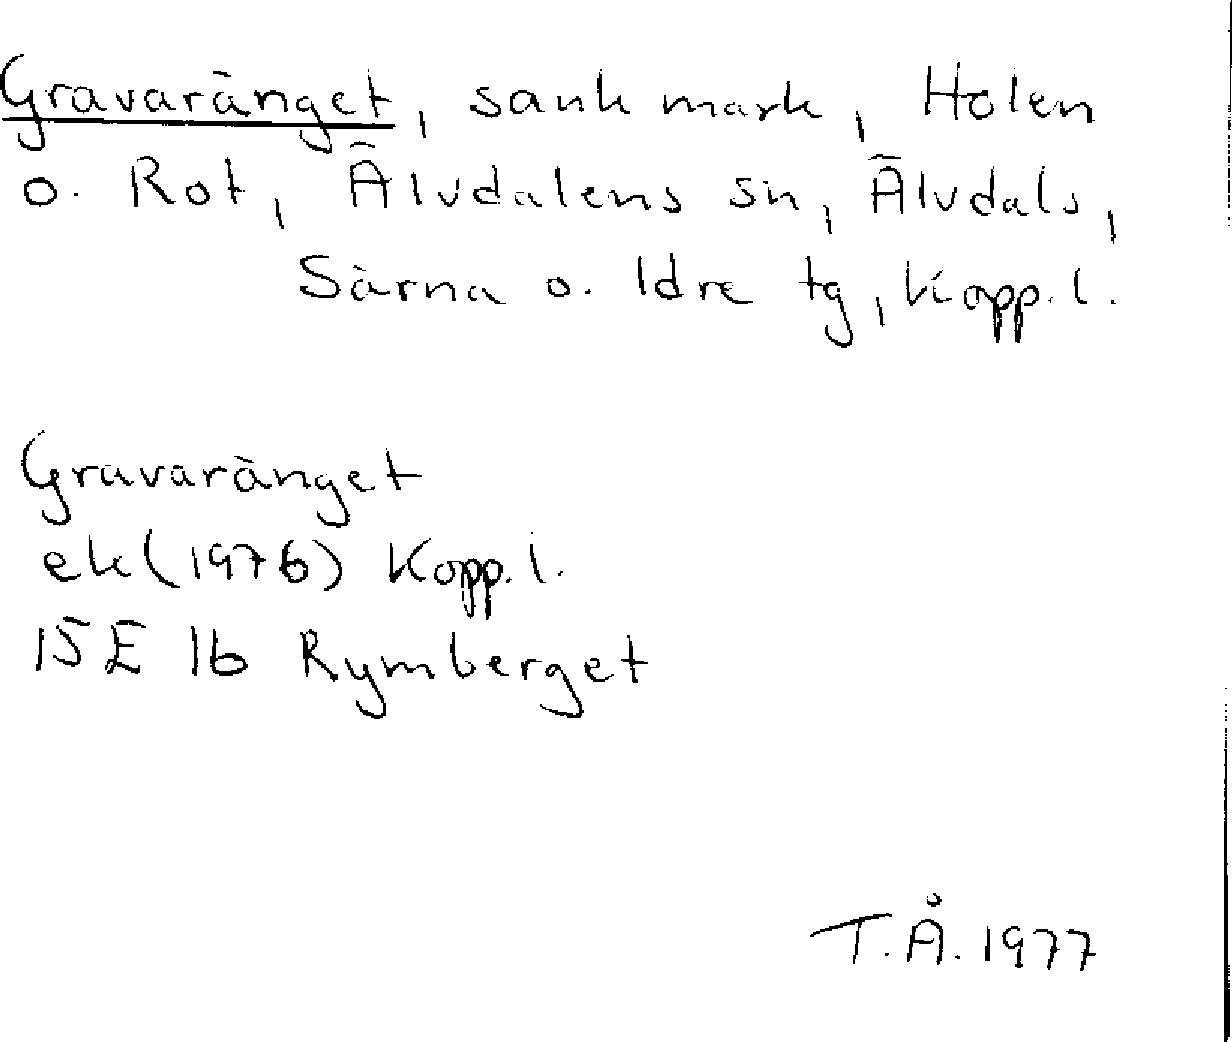 Gravaränget, sank mark, Holen
o. Rot, Älvdalens sn, Älvdals,
Särna o. Idre tg, Kopp. l.
Gravaränget
ek (1976) Kopp. l.
15E 1b Rymberget
T.Å. 1977